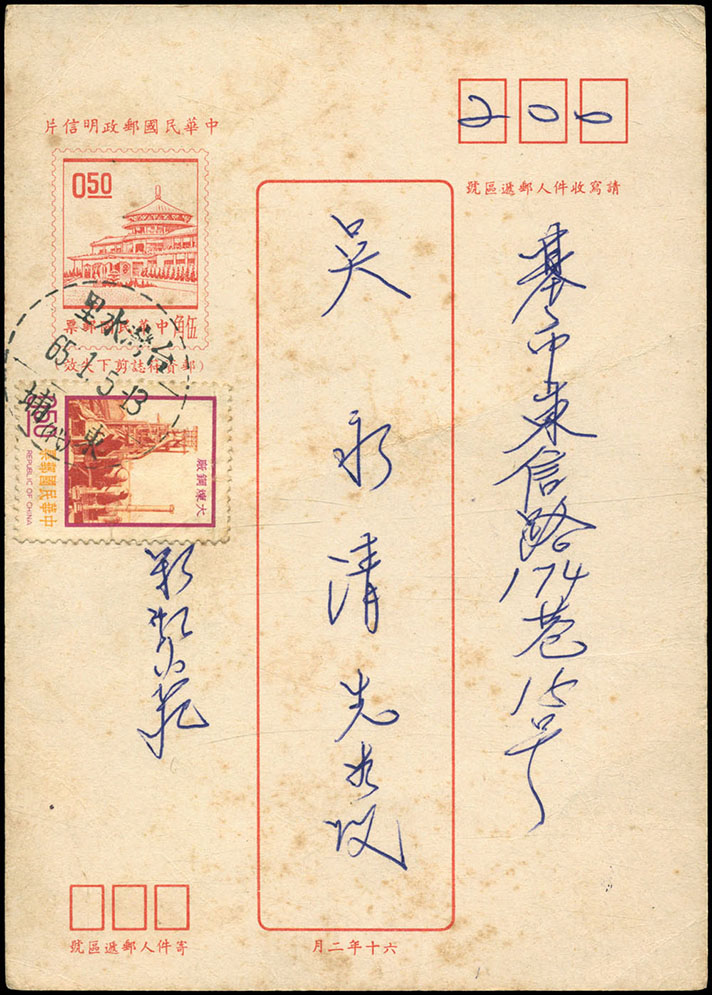 中華民國郵政明信片
200
請寫收件人郵遞區號
0.50
伍角 中華民國郵票
(郵資符誌剪下失效)
台灣水里
65.1.5.13
大煉鋼廠
中華民國郵票
REPUBLIC OF CHINA
基市東信路174巷15号
吴永清先生收
寄件人郵遞區號
六十年二月